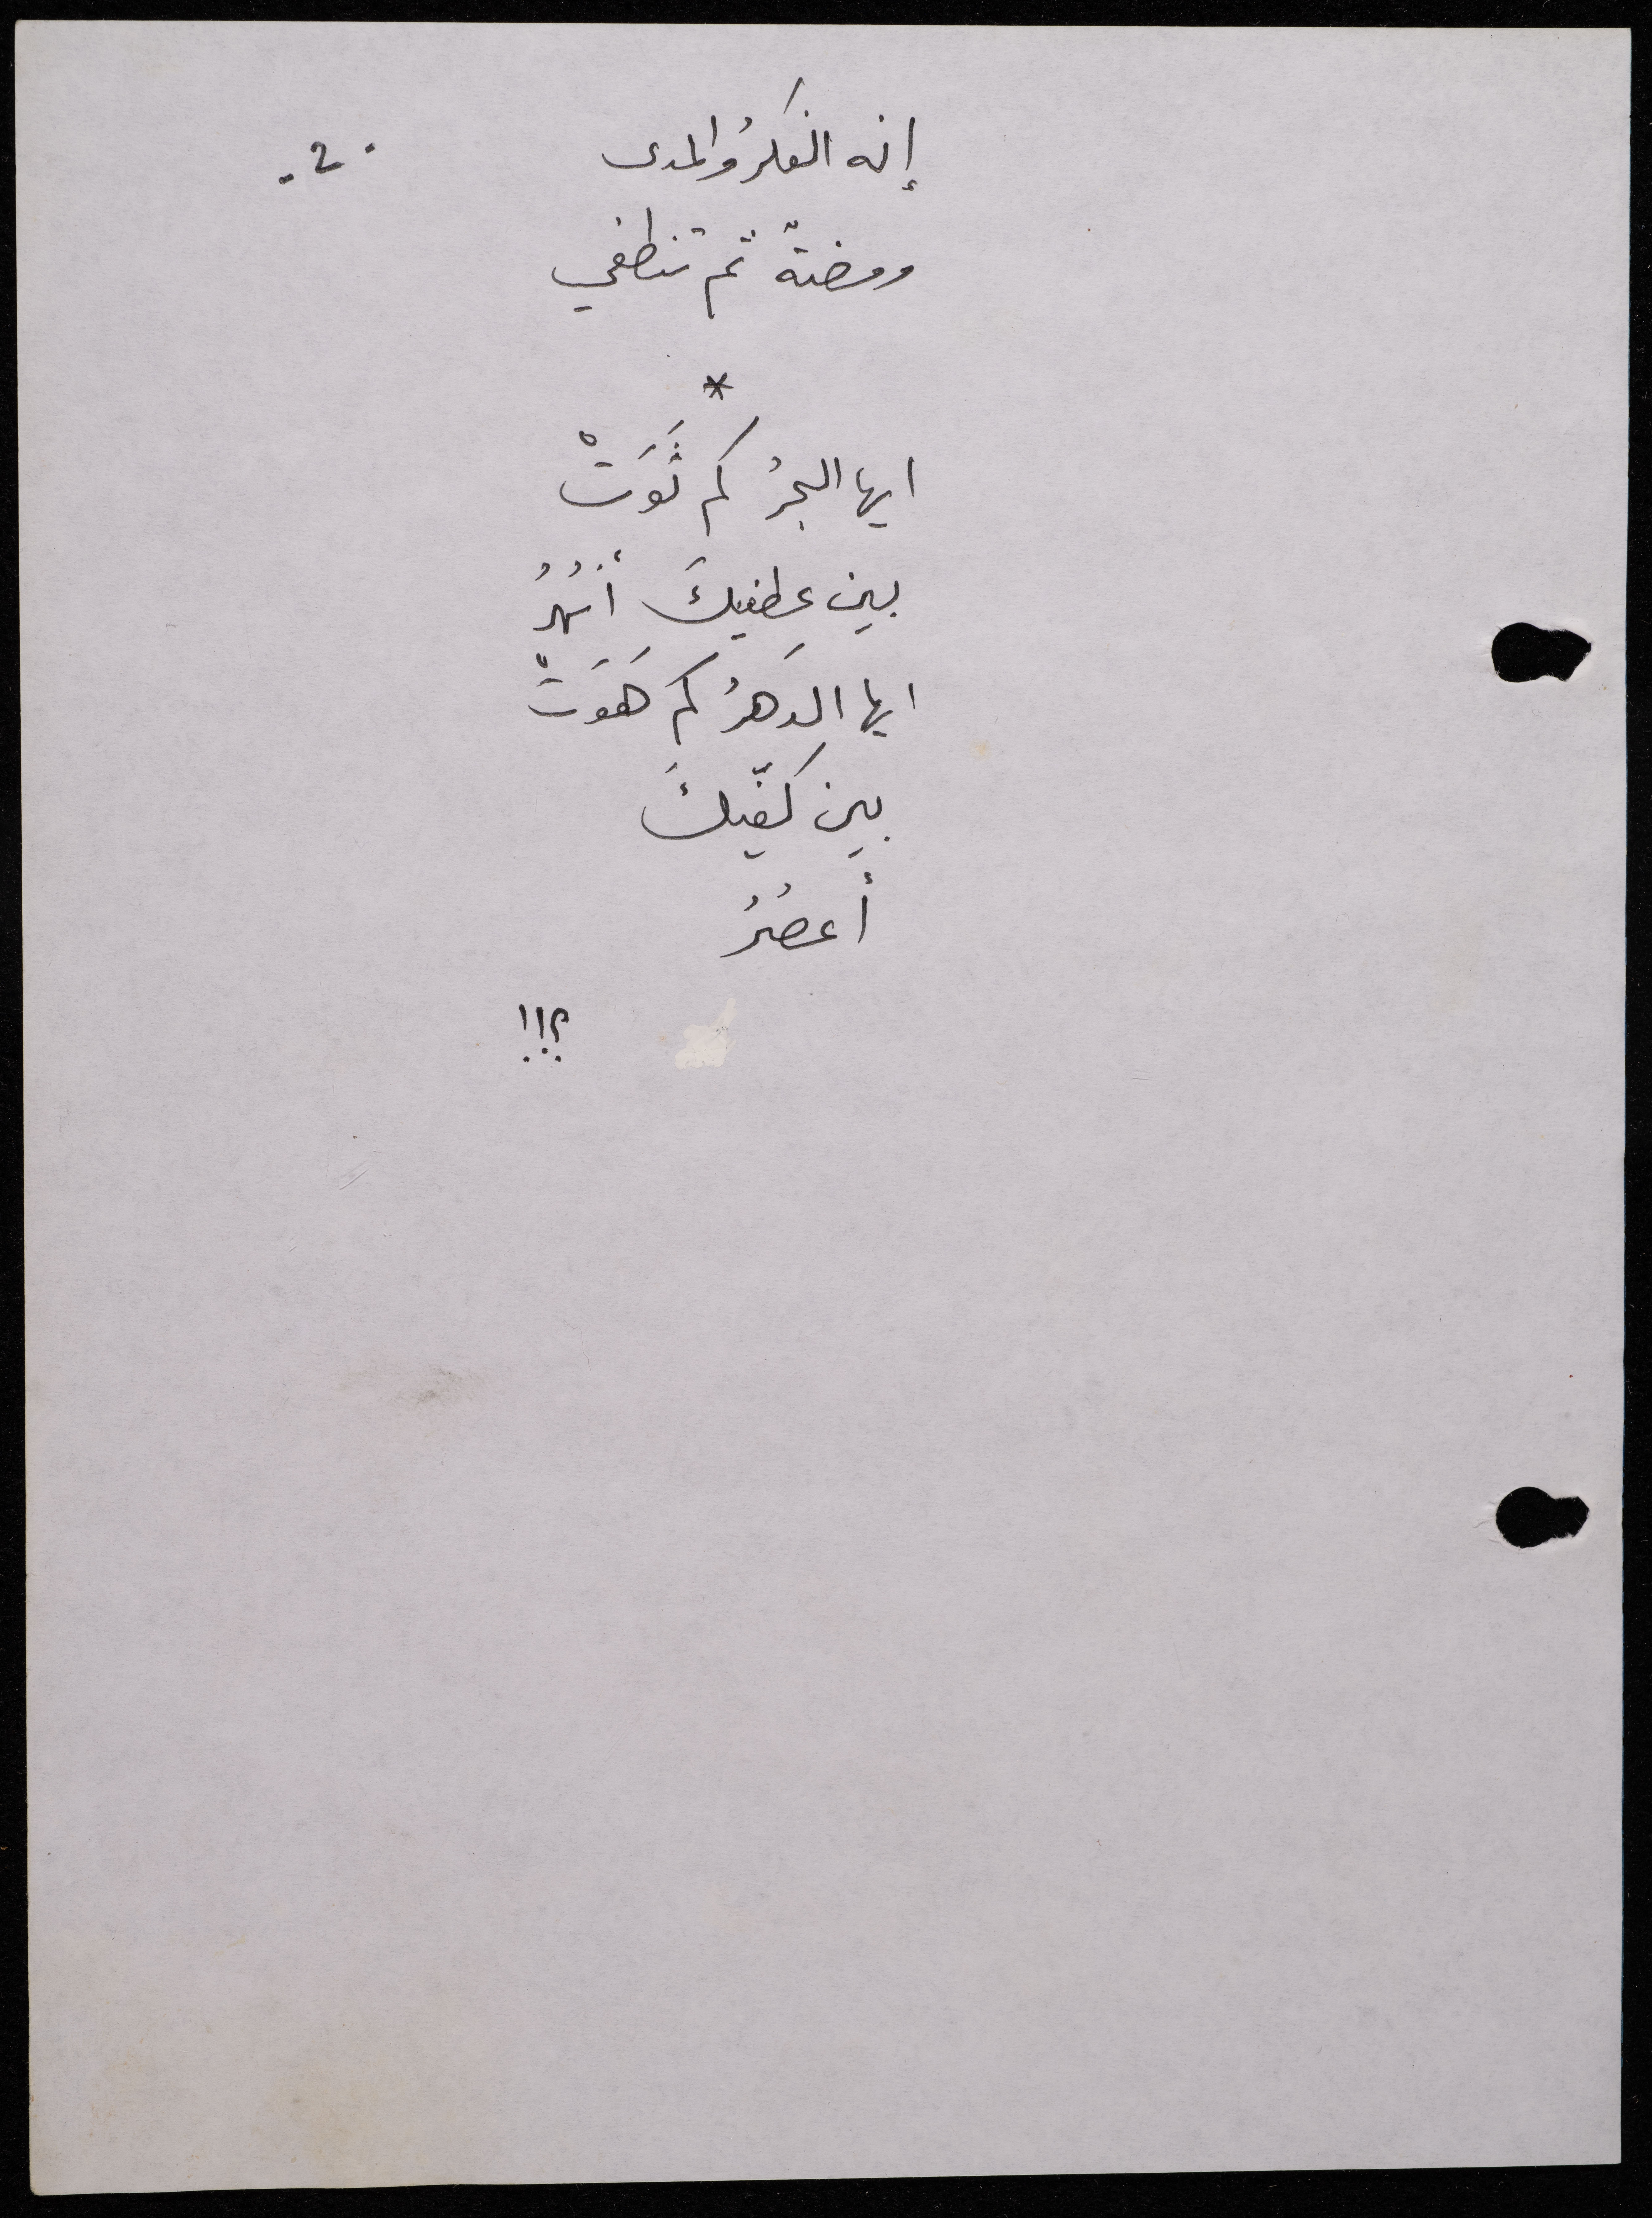 إنه الفكرُ والمدى
-٢-
ومضةٌ ثم تنطفي
*
ايها البحرُ كم ثَوَتْ
بين عِطفيكَ أنهُرُ
ايها الدهرُ كم هَوَتْ
بين كفّيكَ
أعصُرُ
؟!!